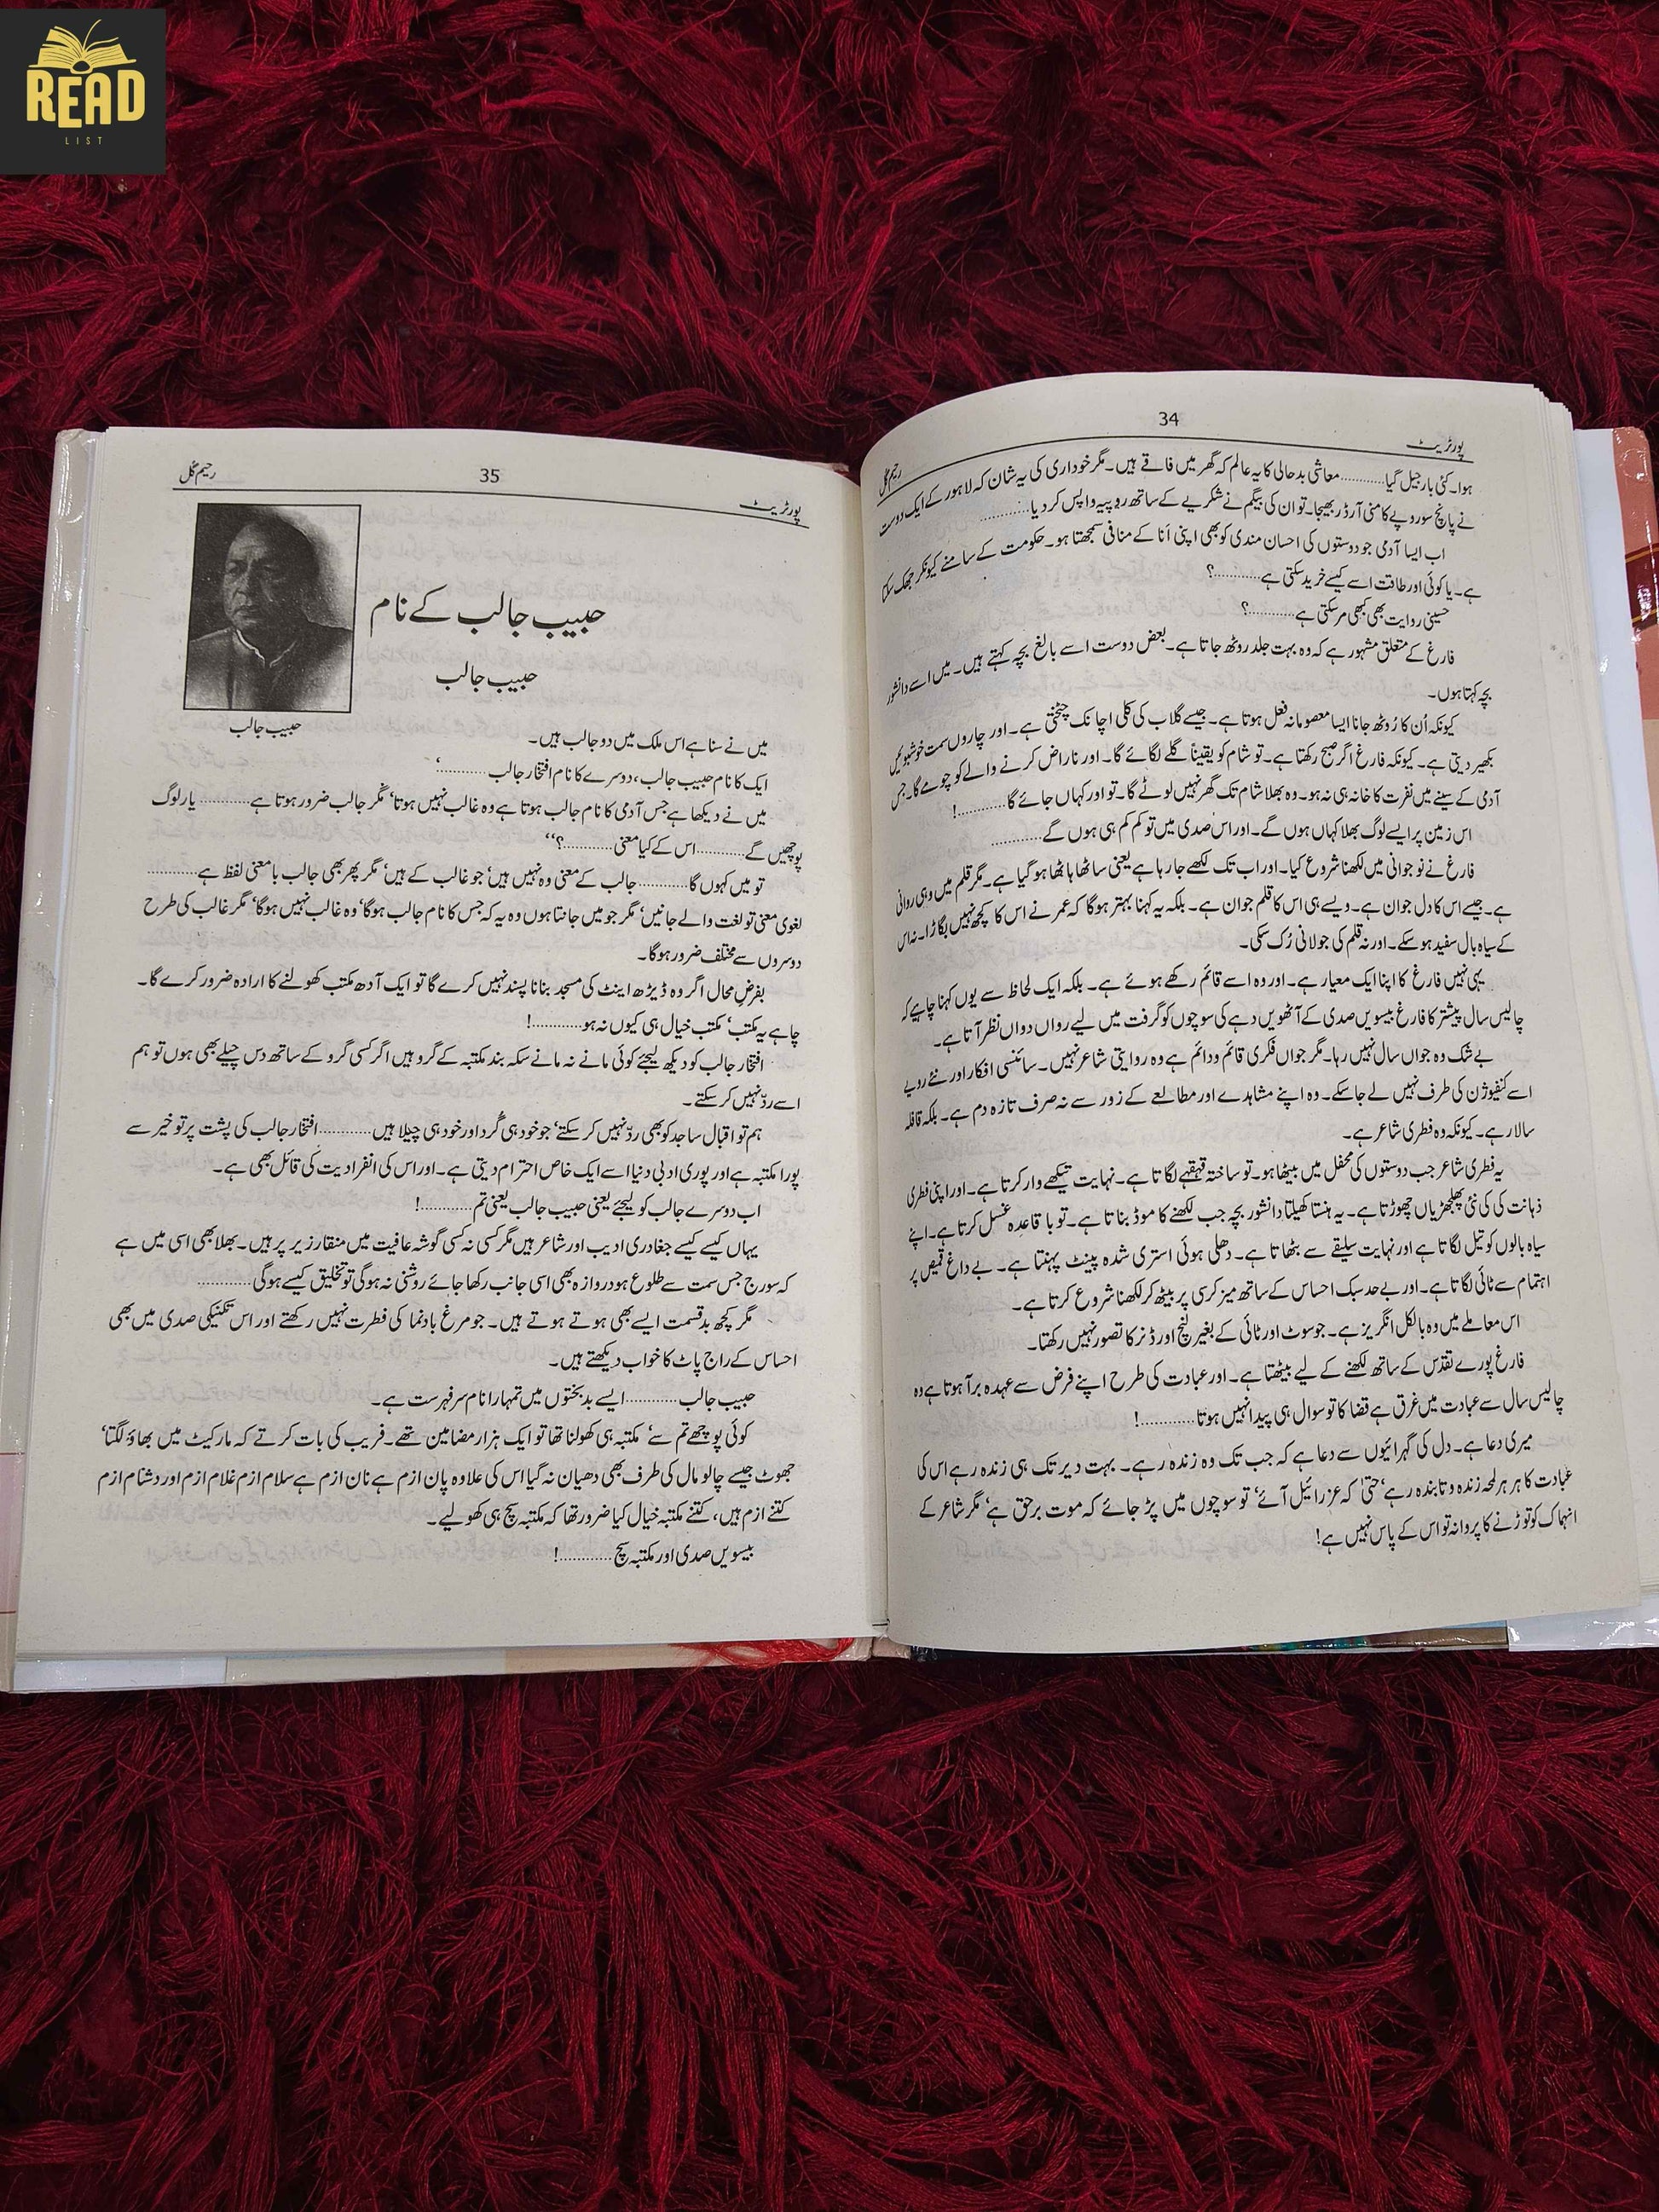 READ
LIST
34
پورٹریٹ
رحیم گل
ہوا۔ کئی بار جیل گیا............معاشی بدحالی کا یہ عالم کہ گھر میں فاقے ہیں۔ مگر خودداری کی یہ شان کہ لاہور کے ایک دوست
نے پانچ سو روپے کا منی آرڈر بھیجا۔ تو ان کی بیگم نے شکریے کے ساتھ روپیہ واپس کر دیا............
اب ایسا آدمی جو دوستوں کی احسان مندی کو بھی اپنی اَنا کے منافی سمجھتا ہو۔ حکومت کے سامنے کیونکر جھک سکتا
ہے۔ یا کوئی اور طاقت اسے کیسے خرید سکتی ہے............؟
حسینی روایت بھی کبھی مر سکتی ہے............؟
فارغ کے متعلق مشہور ہے کہ وہ بہت جلد روٹھ جاتا ہے۔ بعض دوست اسے بالغ بچہ کہتے ہیں۔ میں اسے دانشور
بچہ کہتا ہوں۔
کیونکہ اُن کا رُوٹھ جانا ایسا معصومانہ فعل ہوتا ہے۔ جیسے گلاب کی کلی اچانک چٹختی ہے۔ اور چاروں سمت خوشبوئیں
بکھیر دیتی ہے۔ کیونکہ فارغ اگر صبح رکھتا ہے۔ تو شام کو یقیناً گلے لگائے گا۔ اور ناراض کرنے والے کو چومے گا۔ جس
آدمی کے سینے میں نفرت کا خانہ ہی نہ ہو۔ وہ بھلا شام تک گھر نہیں لوٹے گا۔ تو اور کہاں جائے گا............!
اس زمین پر ایسے لوگ بھلا کہاں ہوں گے۔ اور اس صدی میں تو کم کم ہی ہوں گے............
فارغ نے نوجوانی میں لکھنا شروع کیا۔ اور اب تک لکھے جا رہا ہے یعنی ساٹھا باٹھا ہو گیا ہے۔ مگر قلم میں وہی روانی
ہے۔ جیسے اس کا دل جوان ہے۔ ویسے ہی اس کا قلم جوان ہے۔ بلکہ یہ کہنا بہتر ہوگا کہ عمر نے اس کا کچھ نہیں بگاڑا۔ نہ اس
کے سیاہ بال سفید ہو سکے۔ اور نہ قلم کی جولانی رُک سکی۔
یہی نہیں فارغ کا اپنا ایک معیار ہے۔ اور وہ اسے قائم رکھے ہوئے ہے۔ بلکہ ایک لحاظ سے یوں کہنا چاہیے کہ
چالیس سال پیشتر کا فارغ بیسویں صدی کے آٹھویں دہے کی سوچوں کو گرفت میں لیے رواں دواں نظر آتا ہے۔
بے شک وہ جواں سال نہیں رہا۔ مگر جواں فکری قائم و دائم ہے وہ روایتی شاعر نہیں۔ سائنسی افکار اور نئے رویے
اسے کنفیوژن کی طرف نہیں لے جا سکے۔ وہ اپنے مشاہدے اور مطالعے کے زور سے نہ صرف تازہ دم ہے۔ بلکہ قافلہ
سالار ہے۔ کیونکہ وہ فطری شاعر ہے۔
یہ فطری شاعر جب دوستوں کی محفل میں بیٹھا ہو۔ تو ساختہ قہقہے لگاتا ہے۔ نہایت تیکھے وار کرتا ہے۔ اور اپنی فطری
ذہانت کی کئی نئی پھلجھڑیاں چھوڑتا ہے۔ یہ ہنستا کھیلتا دانشور بچہ جب لکھنے کا موڈ بناتا ہے۔ تو باقاعدہ غسل کرتا ہے۔ اپنے
سیاہ بالوں کو تیل لگاتا ہے اور نہایت سلیقے سے بٹھاتا ہے۔ دھلی ہوئی استری شدہ پینٹ پہنتا ہے۔ بے داغ قمیض پر
اہتمام سے ٹائی لگاتا ہے۔ اور بے حد سبک احساس کے ساتھ میز کرسی پر بیٹھ کر لکھنا شروع کرتا ہے۔
اس معاملے میں وہ بالکل انگریز ہے۔ جو سوٹ اور ٹائی کے بغیر لنچ اور ڈنر کا تصور نہیں رکھتا۔
فارغ پورے تقدّس کے ساتھ لکھنے کے لیے بیٹھتا ہے۔ اور عبادت کی طرح اپنے فرض سے عہدہ برآ ہوتا ہے وہ
چالیس سال سے عبادت میں غرق ہے قضا کا تو سوال ہی پیدا نہیں ہوتا............!
میری دعا ہے۔ دل کی گہرائیوں سے دعا ہے کہ جب تک وہ زندہ رہے۔ بہت دیر تک ہی زندہ رہے اس کی
عبادت کا ہر ہر لمحہ زندہ و تابندہ رہے‘ حتیٰ کہ عزرائیل آئے‘ تو سوچوں میں پڑ جائے کہ موت برحق ہے‘ مگر شاعر کے
انہماک کو توڑنے کا پروانہ تو اس کے پاس نہیں ہے!
35
رحیم گل
پورٹریٹ
حبیب جالب کے نام
حبیب جالب
حبیب جالب
میں نے سنا ہے اس ملک میں دو جالب ہیں۔
ایک کا نام حبیب جالب، دوسرے کا نام افتخار جالب............‘
میں نے دیکھا ہے جس آدمی کا نام جالب ہوتا ہے وہ غالب نہیں ہوتا‘ مگر جالب ضرور ہوتا ہے............ یار لوگ
پوچھیں گے............اس کے کیا معنی............؟‘‘
تو میں کہوں گا............جالب کے معنی وہ نہیں ہیں‘ جو غالب کے ہیں‘ مگر پھر بھی جالب بامعنی لفظ ہے............
لغوی معنی تو لغت والے جانیں‘ مگر جو میں جانتا ہوں وہ یہ کہ جس کا نام جالب ہوگا‘ وہ غالب نہیں ہوگا‘ مگر غالب کی طرح
دوسروں سے مختلف ضرور ہوگا۔
بفرضِ محال اگر وہ ڈیڑھ اینٹ کی مسجد بنانا پسند نہیں کرے گا تو ایک آدھ مکتب کھولنے کا ارادہ ضرور کرے گا۔
چاہے یہ مکتب‘ مکتب خیال ہی کیوں نہ ہو............!
افتخار جالب کو دیکھ لیجئے کوئی مانے نہ مانے سکہ بند مکتبہ کے گرو ہیں اگر کسی گرو کے ساتھ دس چیلے بھی ہوں تو ہم
اسے ردّ نہیں کر سکتے۔
ہم تو اقبال ساجد کو بھی ردّ نہیں کر سکتے‘ جو خود ہی گُرد اور خود ہی چیلا ہیں............افتخار جالب کی پشت پر تو خیر سے
پورا مکتبہ ہے اور پوری ادبی دنیا اسے ایک خاص احترام دیتی ہے۔ اور اس کی انفرادیت کی قائل بھی ہے۔
اب دوسرے جالب کو لیجئے یعنی حبیب جالب یعنی تم............!
یہاں کیسے کیسے جغادری ادیب اور شاعر ہیں مگر کسی نہ کسی گوشہ عافیت میں منقار زیر پر ہیں۔ بھلا بھی اسی میں ہے
کہ سورج جس سمت سے طلوع ہو دروازہ بھی اسی جانب رکھا جائے روشنی نہ ہوگی تو تخلیق کیسے ہوگی............
مگر کچھ بدقسمت ایسے بھی ہوتے ہوتے ہیں۔ جو مرغ بادنما کی فطرت نہیں رکھتے اور اس تکنیکی صدی میں بھی
احساس کے راج پاٹ کا خواب دیکھتے ہیں۔
حبیب جالب............ایسے بدبختوں میں تمہارا نام سرفہرست ہے۔
کوئی پوچھے تم سے‘ مکتبہ ہی کھولنا تھا تو ایک ہزار مضامین تھے۔ فریب کی بات کرتے کہ مارکیٹ میں بھاؤ لگتا‘
جھوٹ جیسے چالو مال کی طرف بھی دھیان نہ گیا اس کی علاوہ پان ازم ہے نان ازم ہے سلام ازم غلام ازم اور دشنام ازم
کتنے ازم ہیں، کتنے مکتبہ خیال کیا ضرور تھا کہ مکتبہ سچ ہی کھولیے۔
بیسویں صدی اور مکتبہ سچ............!